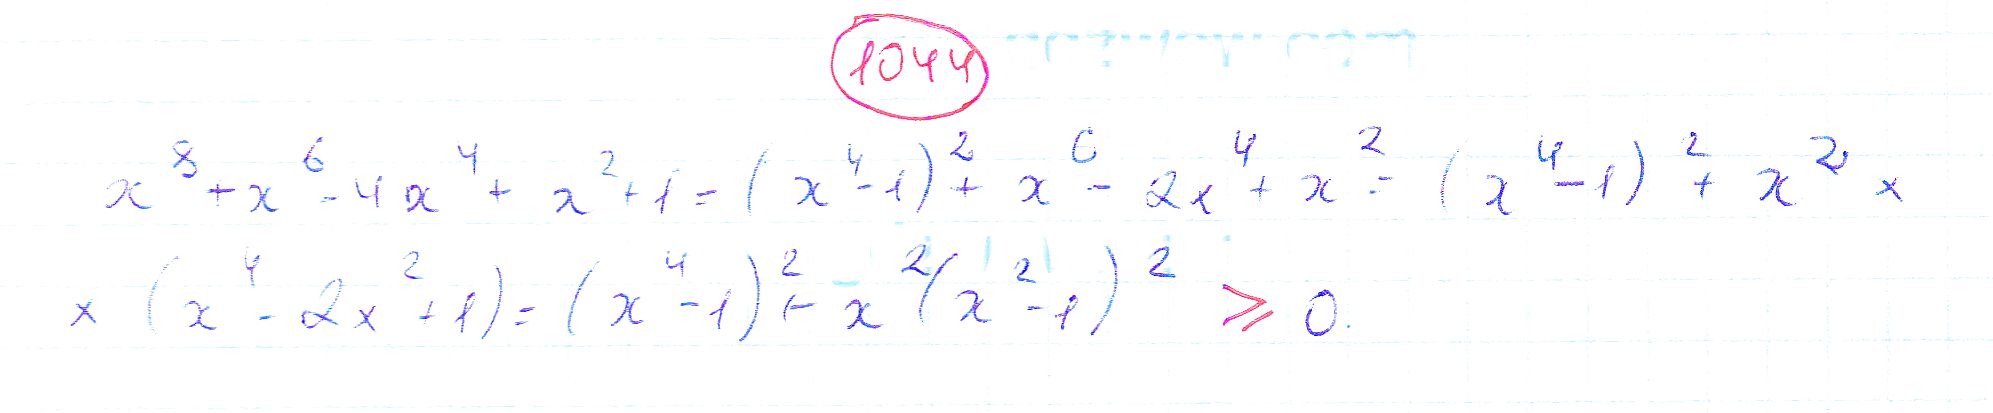 1044
x⁸ + x⁶ - 4x⁴ + x² + 1 = (x⁴ - 1)² + x⁶ - 2x⁴ + x² = (x⁴ - 1)² + x² ×
× (x⁴ - 2x² + 1) = (x⁴ - 1)² + x²(x² - 1)² ≥ 0.